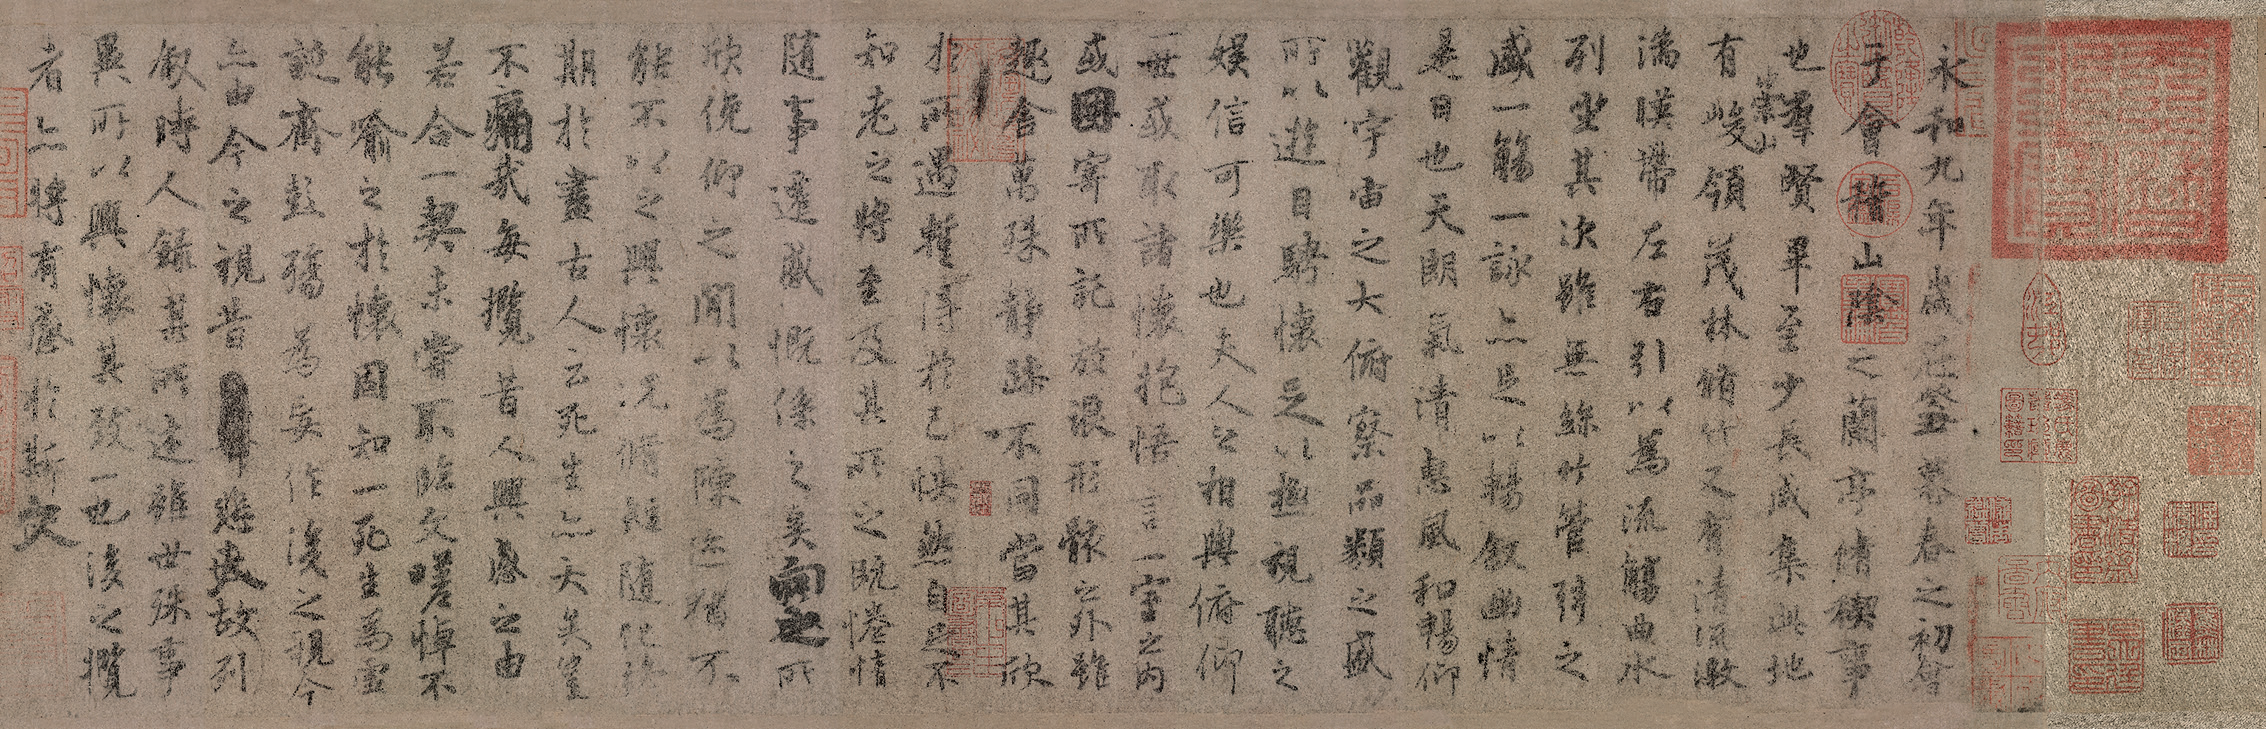 永和九年歲在癸丑暮春之初會
于會稽山陰之蘭亭脩稧事
也羣賢畢至少長咸集此地
有崇山峻領茂林脩竹又有清流激
湍暎帶左右引以爲流觴曲水
列坐其次雖無絲竹管弦之
盛一觴一詠亦足以暢敘幽情
是日也天朗氣清惠風和暢仰
觀宇宙之大俯察品類之盛
所以遊目騁懷足以極視聽之
娛信可樂也夫人之相與俯仰
一世或取諸懷抱悟言一室之內
或因寄所託放浪形骸之外雖
趣舍萬殊靜躁不同當其欣
於所遇蹔得於己怏然自足不
知老之將至及其所之既惓情
隨事遷感慨係之矣向之所
欣俛仰之閒以爲陳迹猶不
能不以之興懷況脩短隨化終
期於盡古人云死生亦大矣豈
不痛哉每攬昔人興感之由
若合一契未嘗不臨文嗟悼不
能喻之於懷固知一死生爲虛
誕齊彭殤爲妄作後之視今
亦由今之視昔悲夫故列
敘時人錄其所述雖世殊事
異所以興懷其致一也後之攬
者亦將有感於斯文